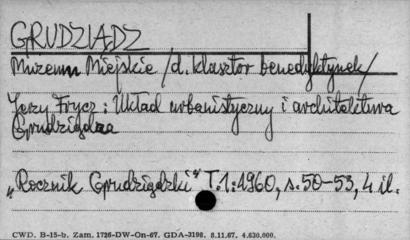 GRUDZIĄDZ
Muzeum Miejskie /d. klasztor benedyktynek/
Jerzy Frycz: Układ urbanistyczny i architektura
Grudziądza
„Rocznik Grudziądzki" T.1:1960, s. 50-53, 4 il.
CWD. B-15-b. Zam. 1726-DW-On-67. GDA-3198. 8.11.67. 4.630.000.